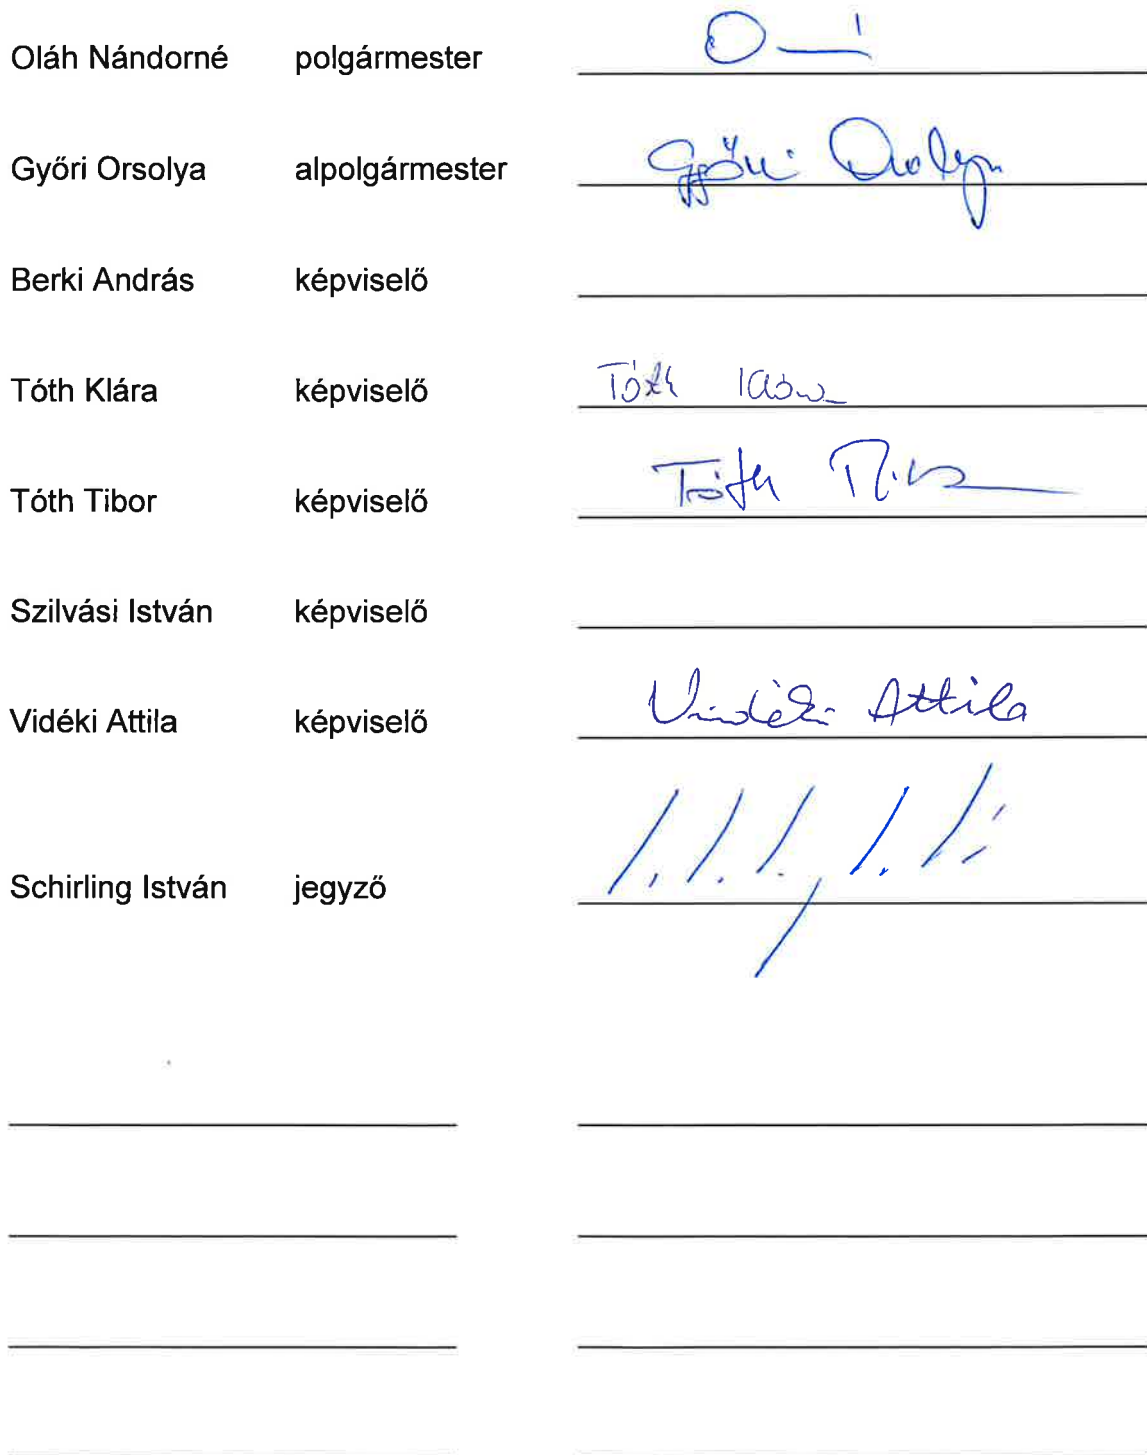 Oláh Nándorné polgármester
Győri Orsolya alpolgármester Győri Orsolya
Berki András képviselő
Tóth Klára képviselő Tóth Klára
Tóth Tibor képviselő Tóth Tibor
Szilvási István képviselő
Vidéki Attila képviselő Vidéki Attila
Schirling István jegyző